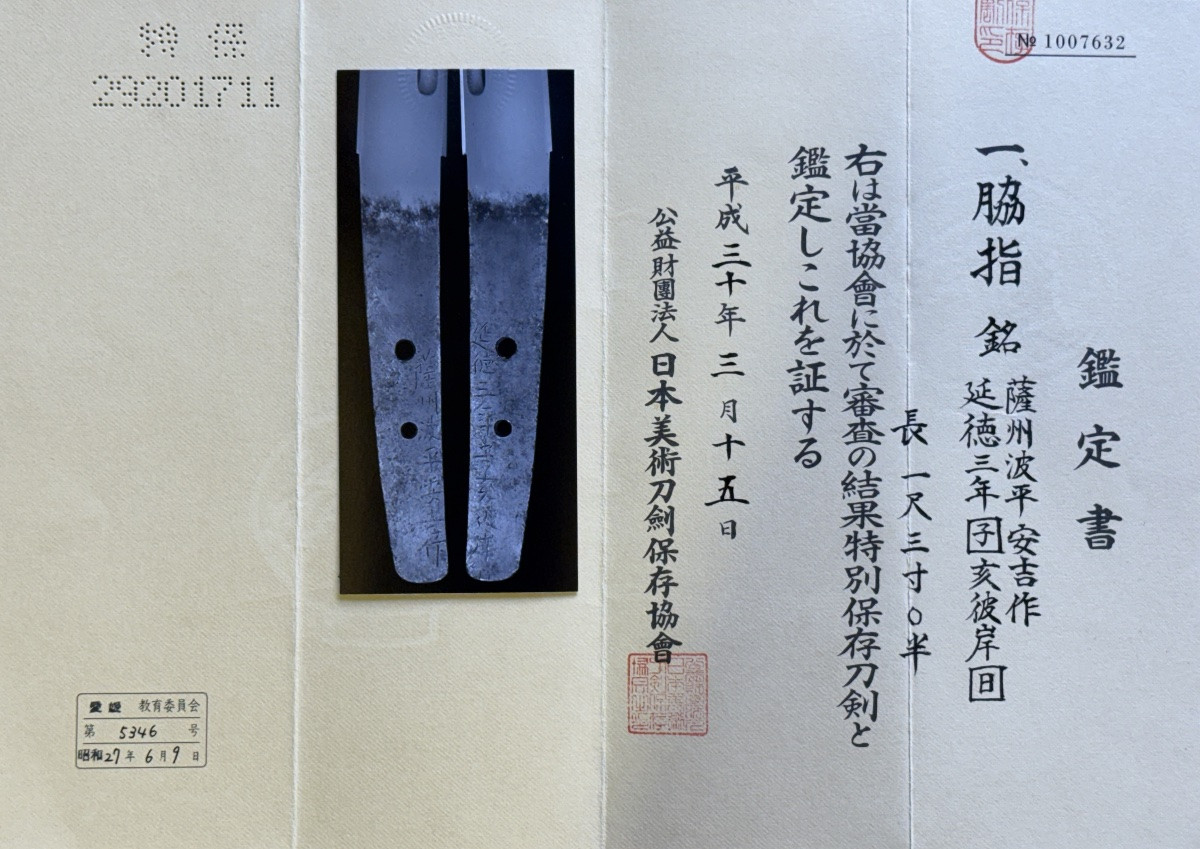 № 1007632
鑑定書
一、脇指 銘 薩州波平安吉作
延徳三年子亥彼岸日
長一尺三寸〇半
右は當協會に於て審査の結果特別保存刀剣と
鑑定しこれを証する
平成三十年三月十五日
公益財團法人日本美術刀劍保存協會
特保
29201711
愛媛 教育委員会
第 5346 号
昭和27年6月9日